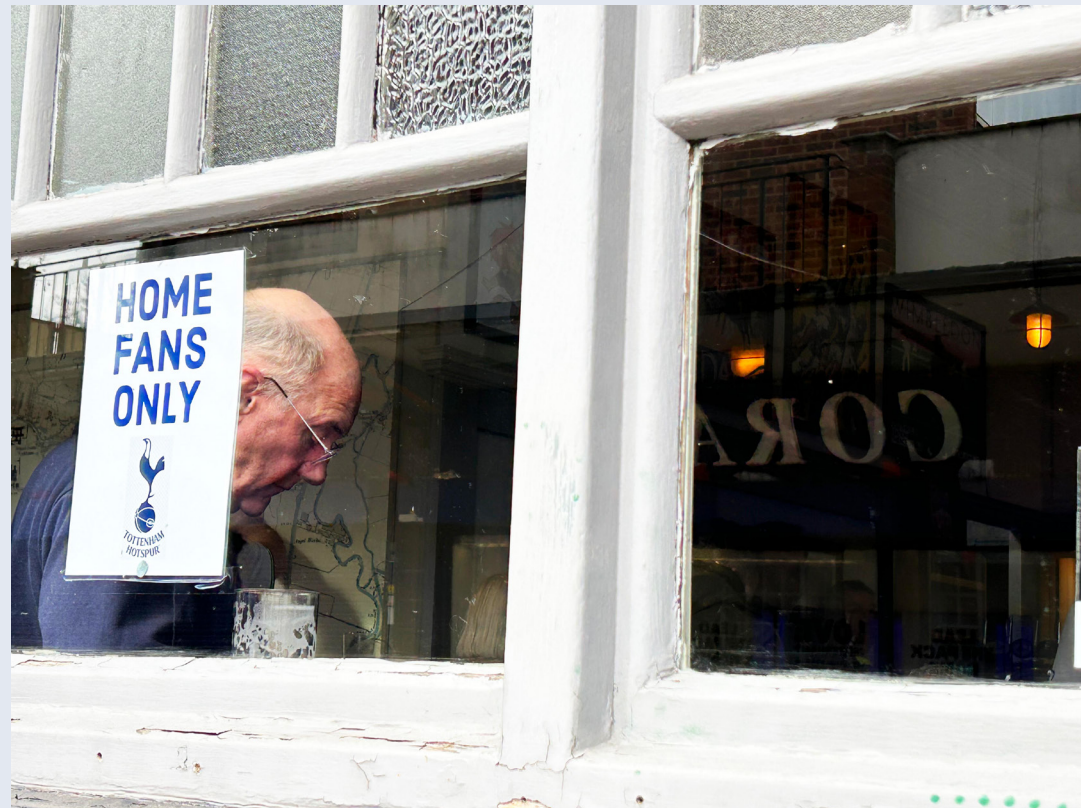 HOME
FANS
ONLY
TOTTENHAM
HOTSPUR
CORA